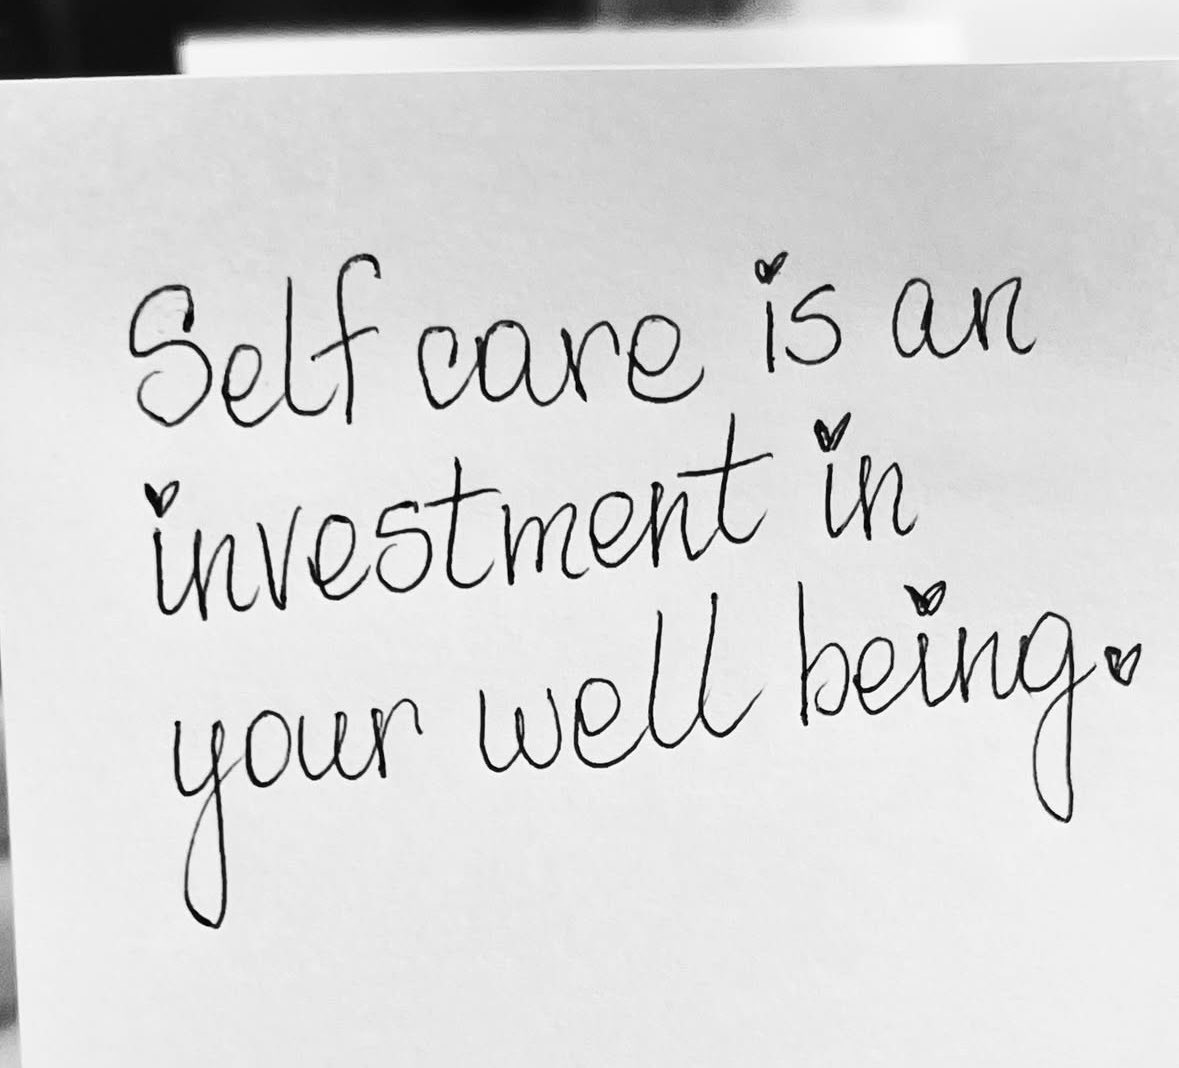 Self care is an
investment in
your well being.